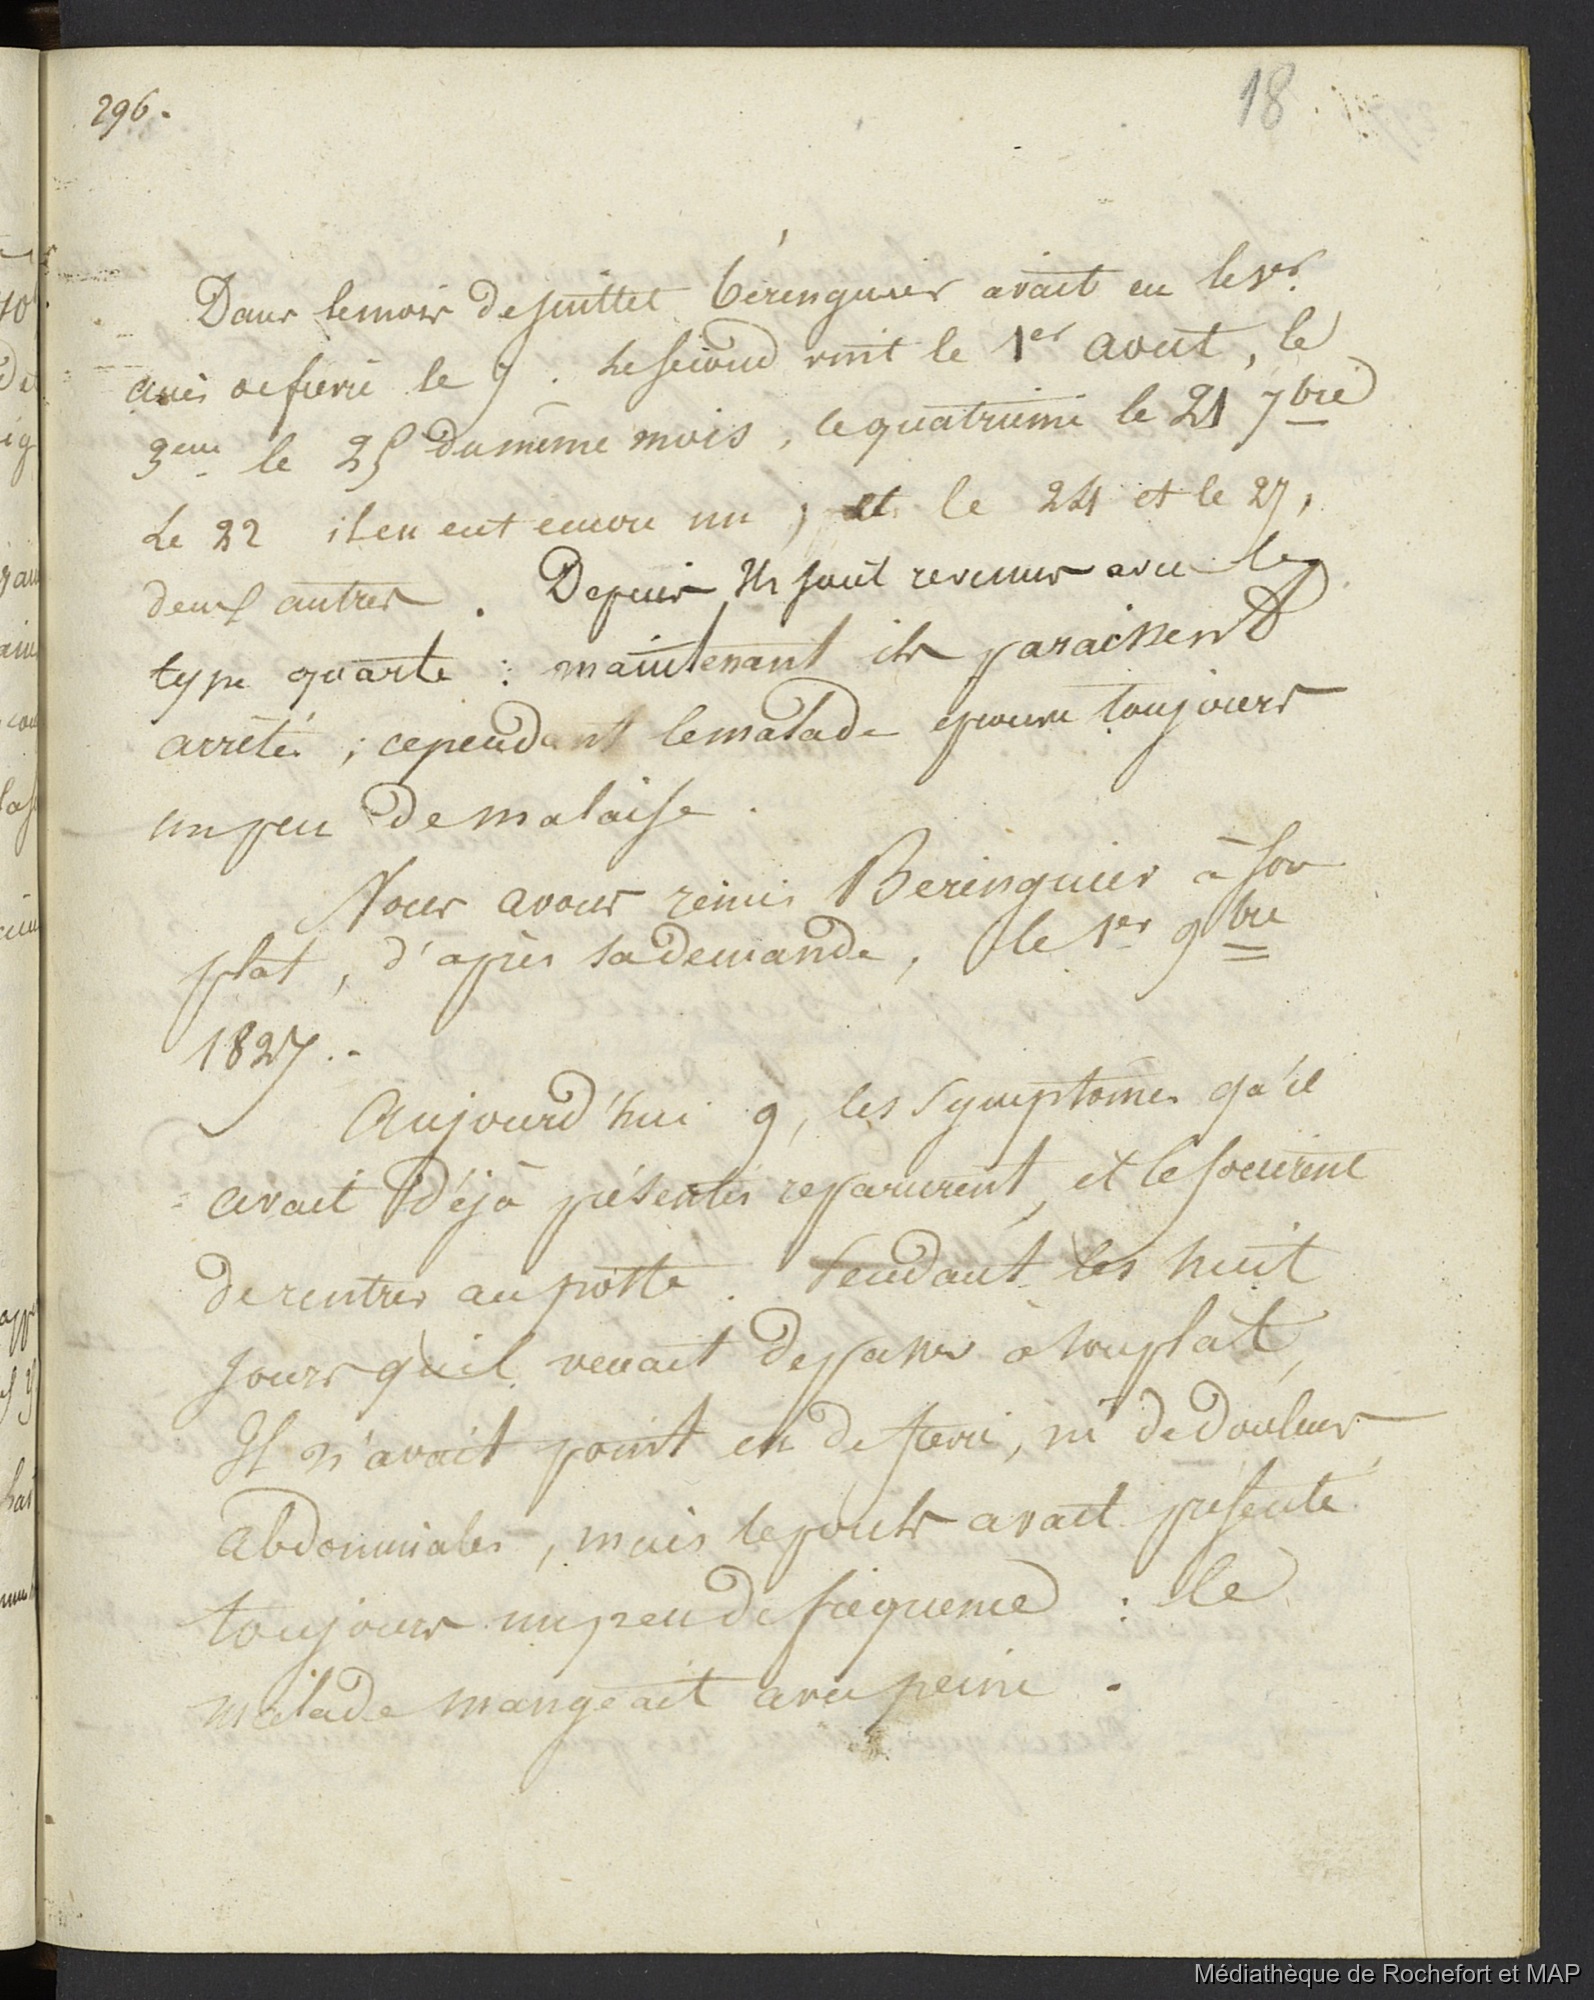 296.
18
Dans le mois de juillet bérenguier avait eu le 1er
accès de fievre le 7. Le second vint le 1er aout, le
3eme le 25 du même mois, le quatrieme le 21 7bre
Le 22 il en eut encore un, et le 24 et le 27,
deux autres. Depuis Ils sont revenus avec le
type quarte : maintenant ils paraissent
arrêtés ; cependant le malade eprouve toujours
un peu de malaise.
Nous avons remis Berenguier à son
plat, d'après sa demande, le 1er 9bre
1827.-
Aujourd'hui 9, les symptomes qu'il
avait déjà présentés reparurent, et le forcerent
de rentrer au poste. Pendant les huit
jours qu'il venait de passer à son plat,
Il n'avait point eu de fievre, ni de douleurs
abdominales, mais le pouls avait présenté
toujours un peu de fréquence : le
malade mangeait avec peine.
Médiathèque de Rochefort et MAP